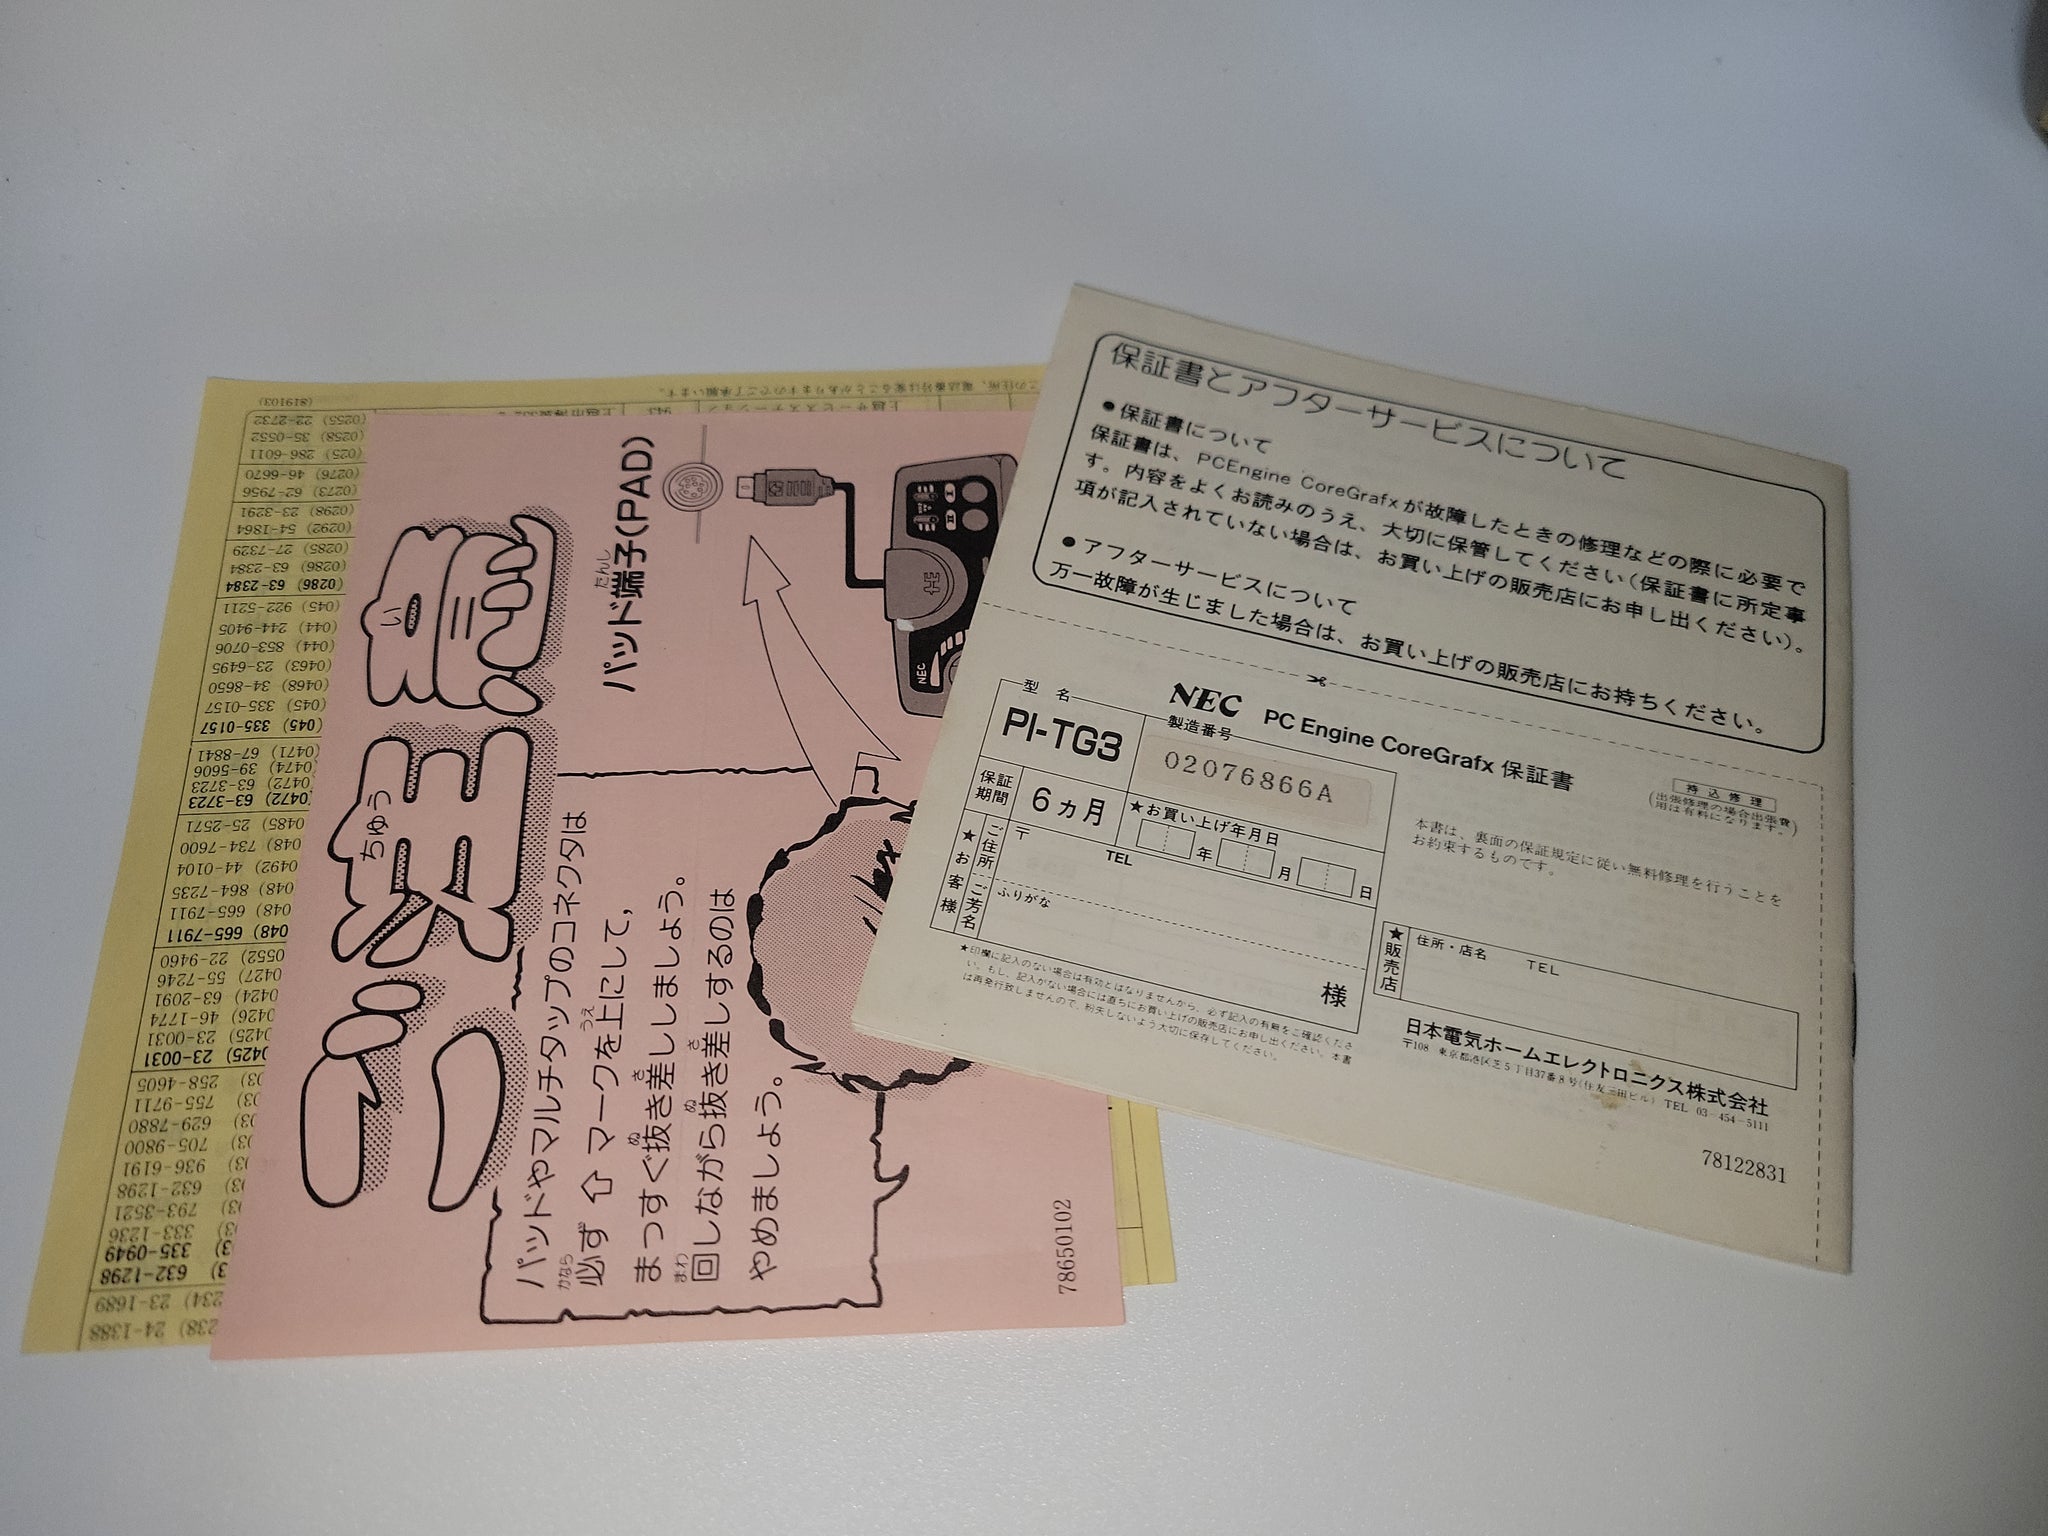 保証書とアフターサービスについて
●保証書について
保証書は、PCEngine CoreGrafxが故障したときの修理などの際に必要で
す。内容をよくお読みのうえ、大切に保管してください(保証書に所定事
項が記入されていない場合は、お買い上げの販売店にお申し出ください)。
●アフターサービスについて
万一故障が生じました場合は、お買い上げの販売店にお持ちください。
NEC PC Engine CoreGrafx 保証書
持込修理
(出張修理の場合出張費
用は有料になります。)
型 名
PI-TG3
製造番号
02076866A
保証
期間
6ヵ月
★お買い上げ年月日
年 月 日
本書は、裏面の保証規定に従い無料修理を行うことを
お約束するものです。
★お客様
ご住所
〒
TEL
ご芳名
ふりがな
様
★販売店
住所・店名 TEL
★印欄に記入のない場合は有効とはなりませんから、必ず記入の有無をご確認くださ
い。もし、記入がない場合には直ちにお買い上げの販売店にお申し出ください。本書
は再発行致しませんので、紛失しないよう大切に保存してください。
日本電気ホームエレクトロニクス株式会社
〒108 東京都港区芝5丁目37番8号(住友三田ビル) TEL 03-454-5111
78122831
ご注意
ちゅう い
パッド端子(PAD)
たんし
NEC
パッドやマルチタップのコネクタは
必ず⇧マークを上にして,
かなら うえ
まっすぐ抜き差ししましょう。
ぬ さ
回しながら抜き差しするのは
まわ ぬ さ
やめましょう。
78650102
(819103)
(0255) 22-2732
(0258) 35-0552
(025) 286-6011
(0276) 46-6670
(0273) 62-7956
(0298) 23-3291
(0292) 54-1864
(0285) 27-7329
(0286) 63-2384
(0286) 63-2384
(045) 922-5211
(044) 244-9405
(044) 853-0706
(0463) 23-6495
(0468) 34-8650
(045) 335-0157
(045) 335-0157
(0471) 67-8841
(0474) 39-5606
(0472) 63-3723
(0472) 63-3723
(0485) 25-2571
(048) 734-7600
(0492) 44-0104
(048) 864-7235
(048) 665-7911
(048) 665-7911
(0552) 22-9460
(0427) 55-7246
(0424) 63-2091
(0426) 46-1774
(0425) 23-0031
(0425) 23-0031
258-4605
755-9711
629-7880
705-9800
936-6191
632-1298
793-3521
333-1236
335-0949
632-1298
23-1689
24-1388